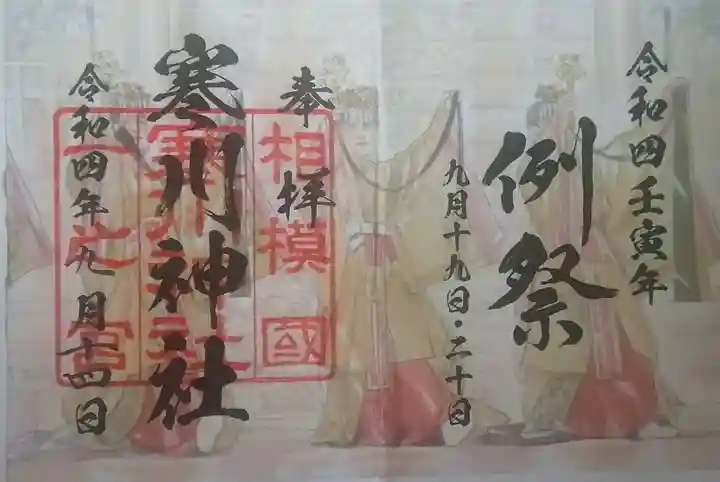 令和四壬寅年
例祭
九月十九日・二十日
奉拝
寒川神社
令和四年九月十四日
相模國
寒川神社
一之宮